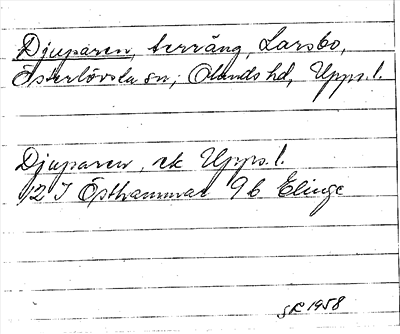 Djuparen, terräng, Larsbo,
Österlövsta sn, Olands hd, Upps. l.
Djuparen, ek Upps. l.
12 I Östhammar 9 b Elinge
SR 1958